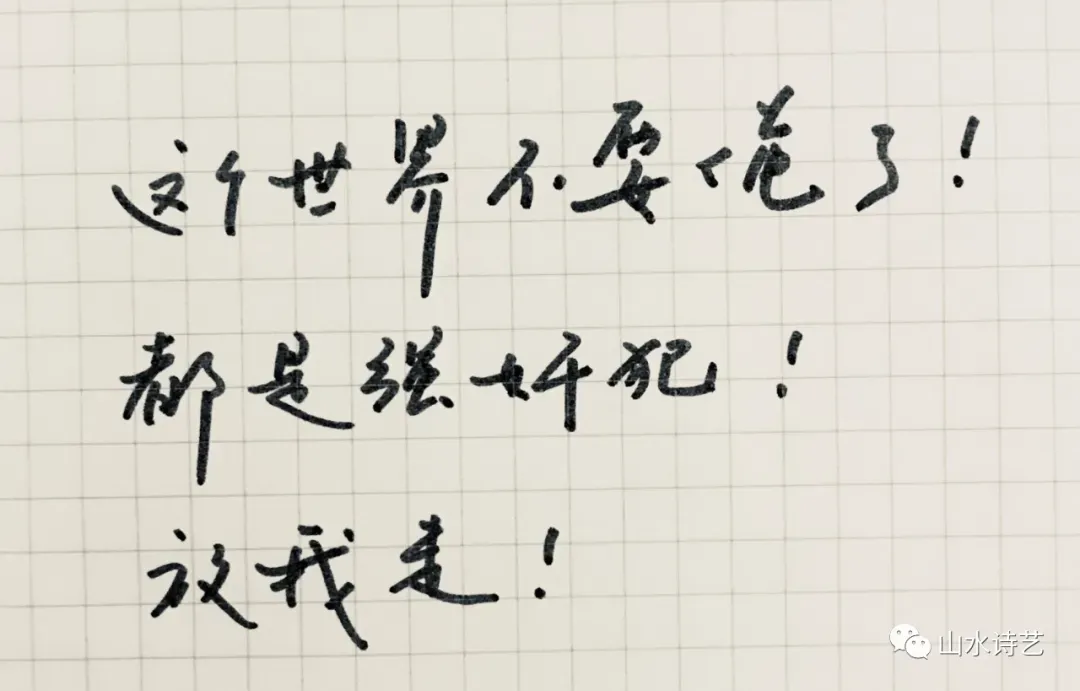 这个世界不要俺了！
都是强奸犯！
放我走！
山水诗艺